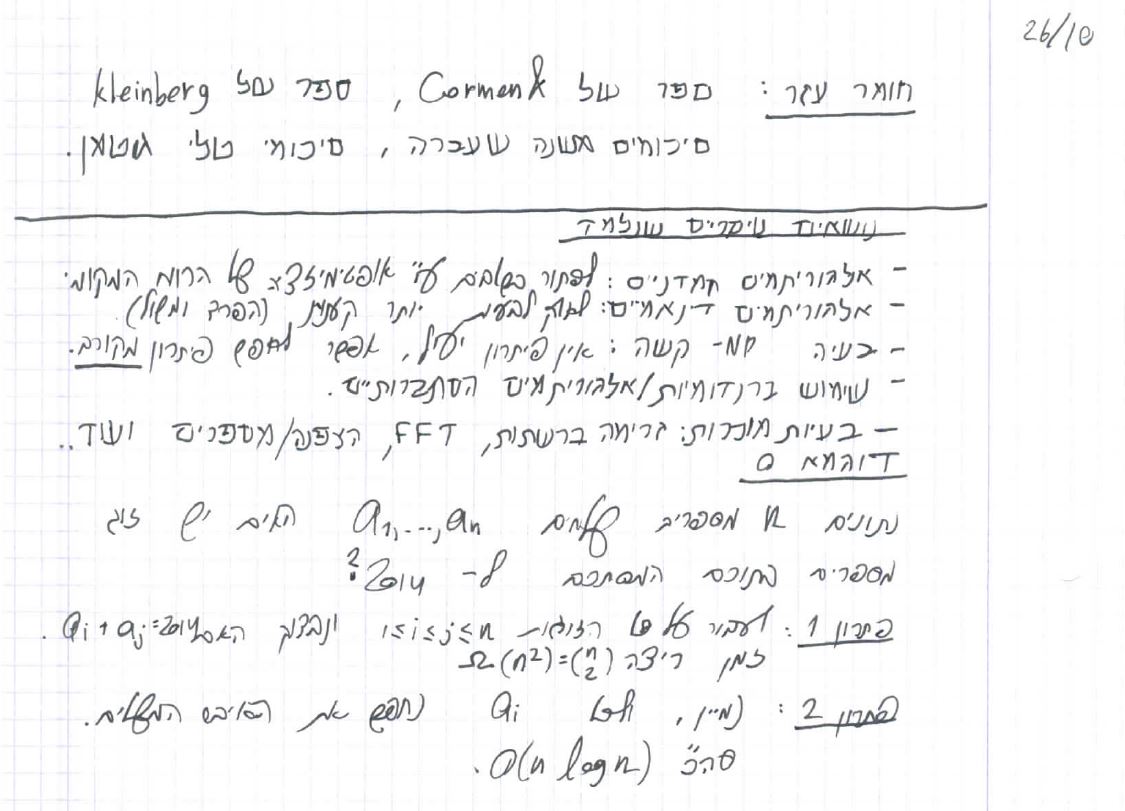 26/10
חומר עזר: ספר של Cormen, ספר של kleinberg
סיכומים משנה שעברה, סיכומי טלי גוטמן.
נושאים עיקריים שנלמד
- אלגוריתמים חמדנים: לפתור בשלבים ע"י אופטימיזציה של הרווח המקומי
- אלגוריתמים דינאמיים: לבעיות יותר קטנות (הפרד ומשול).
- בעיה NP- קשה: אין פיתרון יעיל, אפשר לחפש פיתרון מקורב.
- שימוש ברנדומיות/אלגוריתמים הסתברותיים.
- בעיות מוכרות: זרימה ברשתות, FFT, הצפנה/מספרים ועוד..
דוגמא 0
נתונים n מספרים שלמים a1,...,an האם יש זוג
מספרים מתוכם המסתכם ל- 2014?
פתרון 1: לעבור על כל הזוגות 1≤i≤j≤n ונבדוק האם ai+aj=2014.
זמן ריצה Ω(n²)=(n 2)
פתרון 2: נמיין, ולכל ai נחפש את האיבר המשלים.
סה"כ O(n log n).